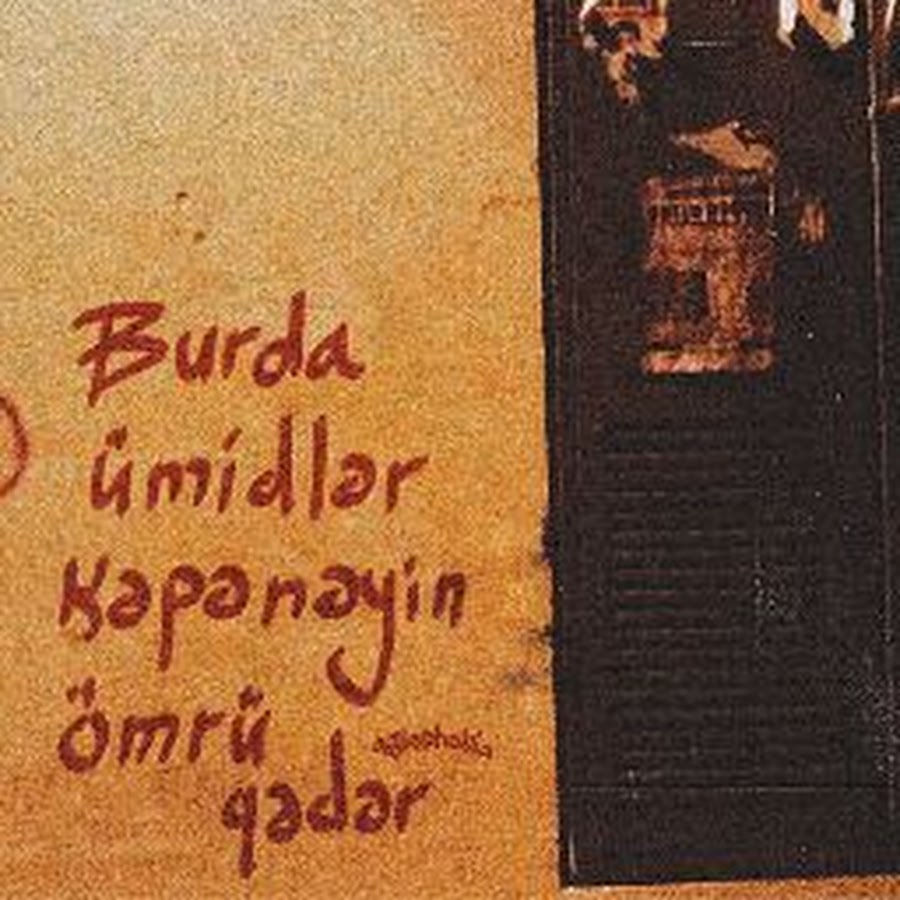 Burda
ümidlər
Kəpənəyin
ömrü
qədər